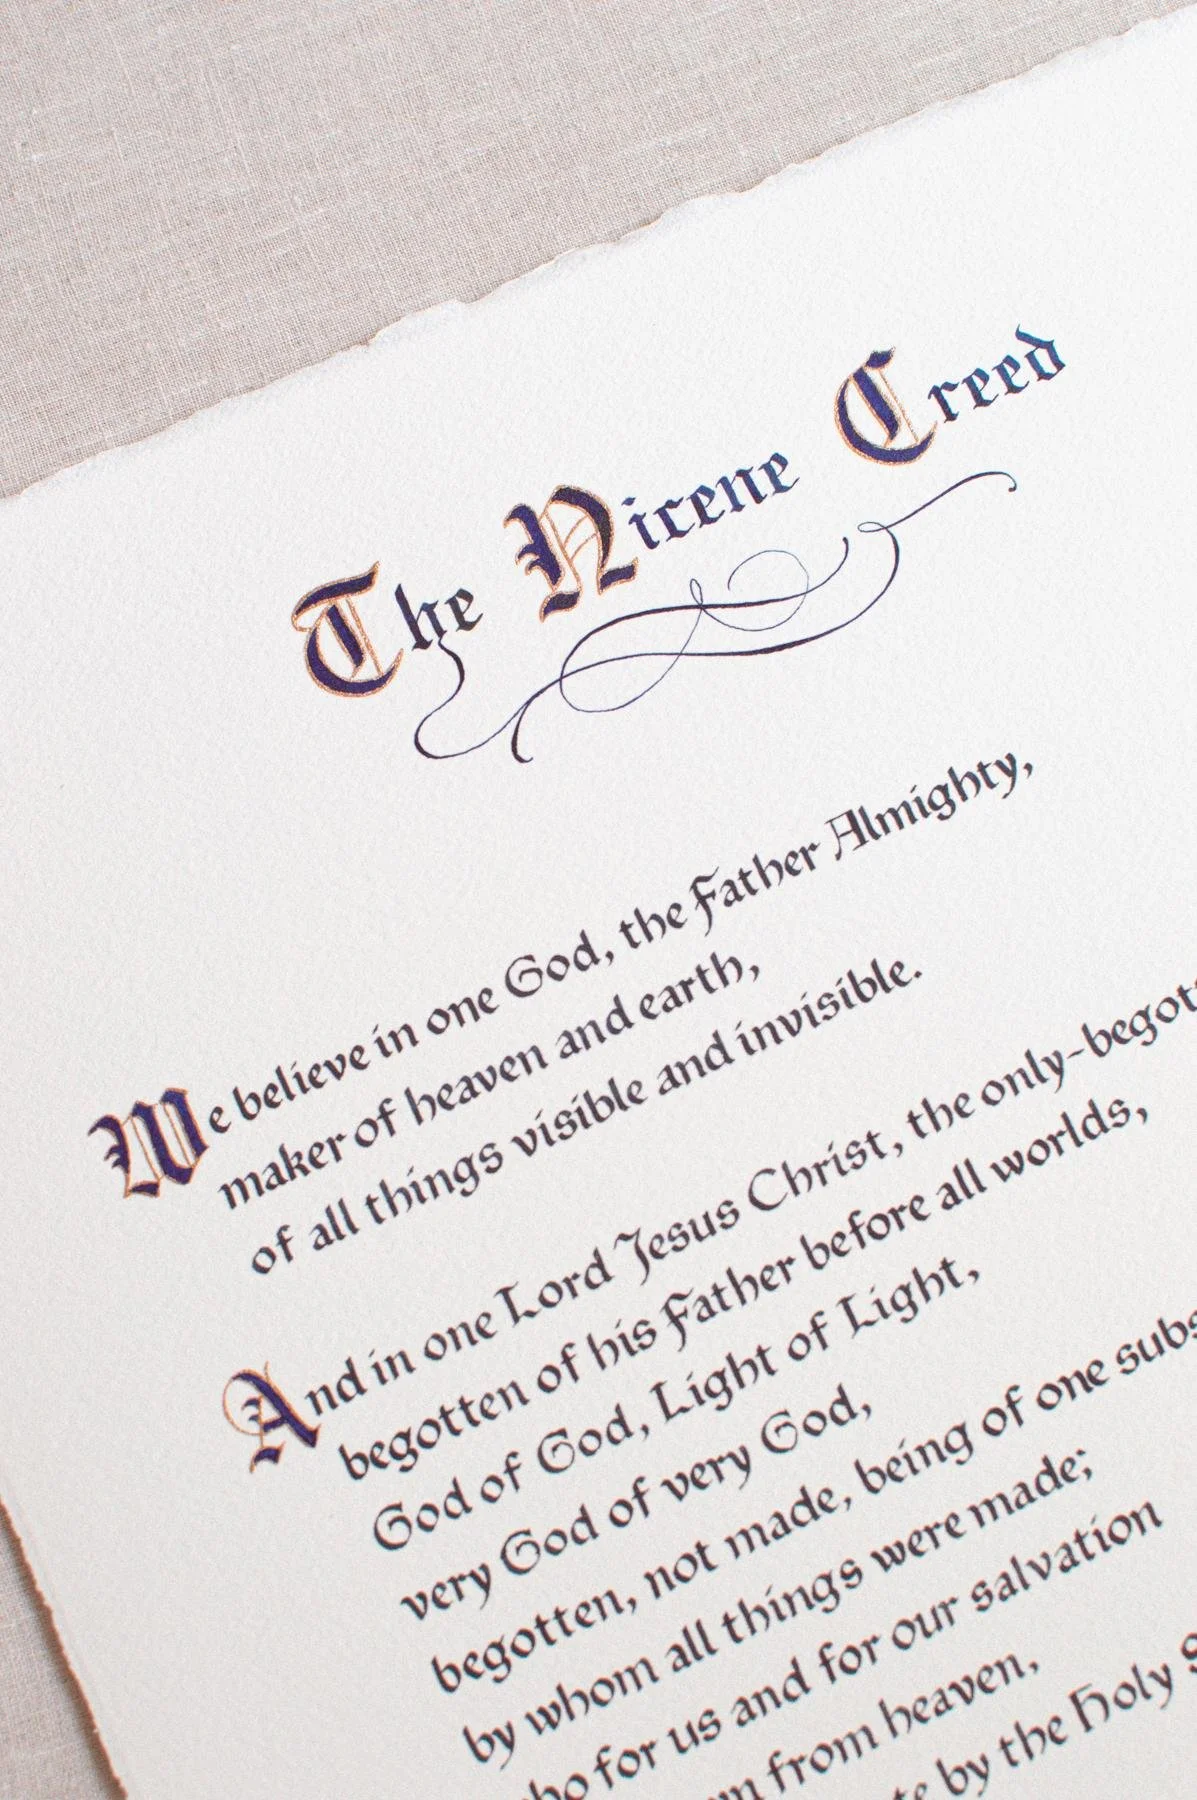 The Nicene Creed
We believe in one God, the Father Almighty,
maker of heaven and earth,
of all things visible and invisible.
And in one Lord Jesus Christ, the only-begott
begotten of his Father before all worlds,
God of God, Light of Light,
very God of very God,
begotten, not made, being of one subs
by whom all things were made;
ho for us and for our salvation
from heaven,
by the Holy S